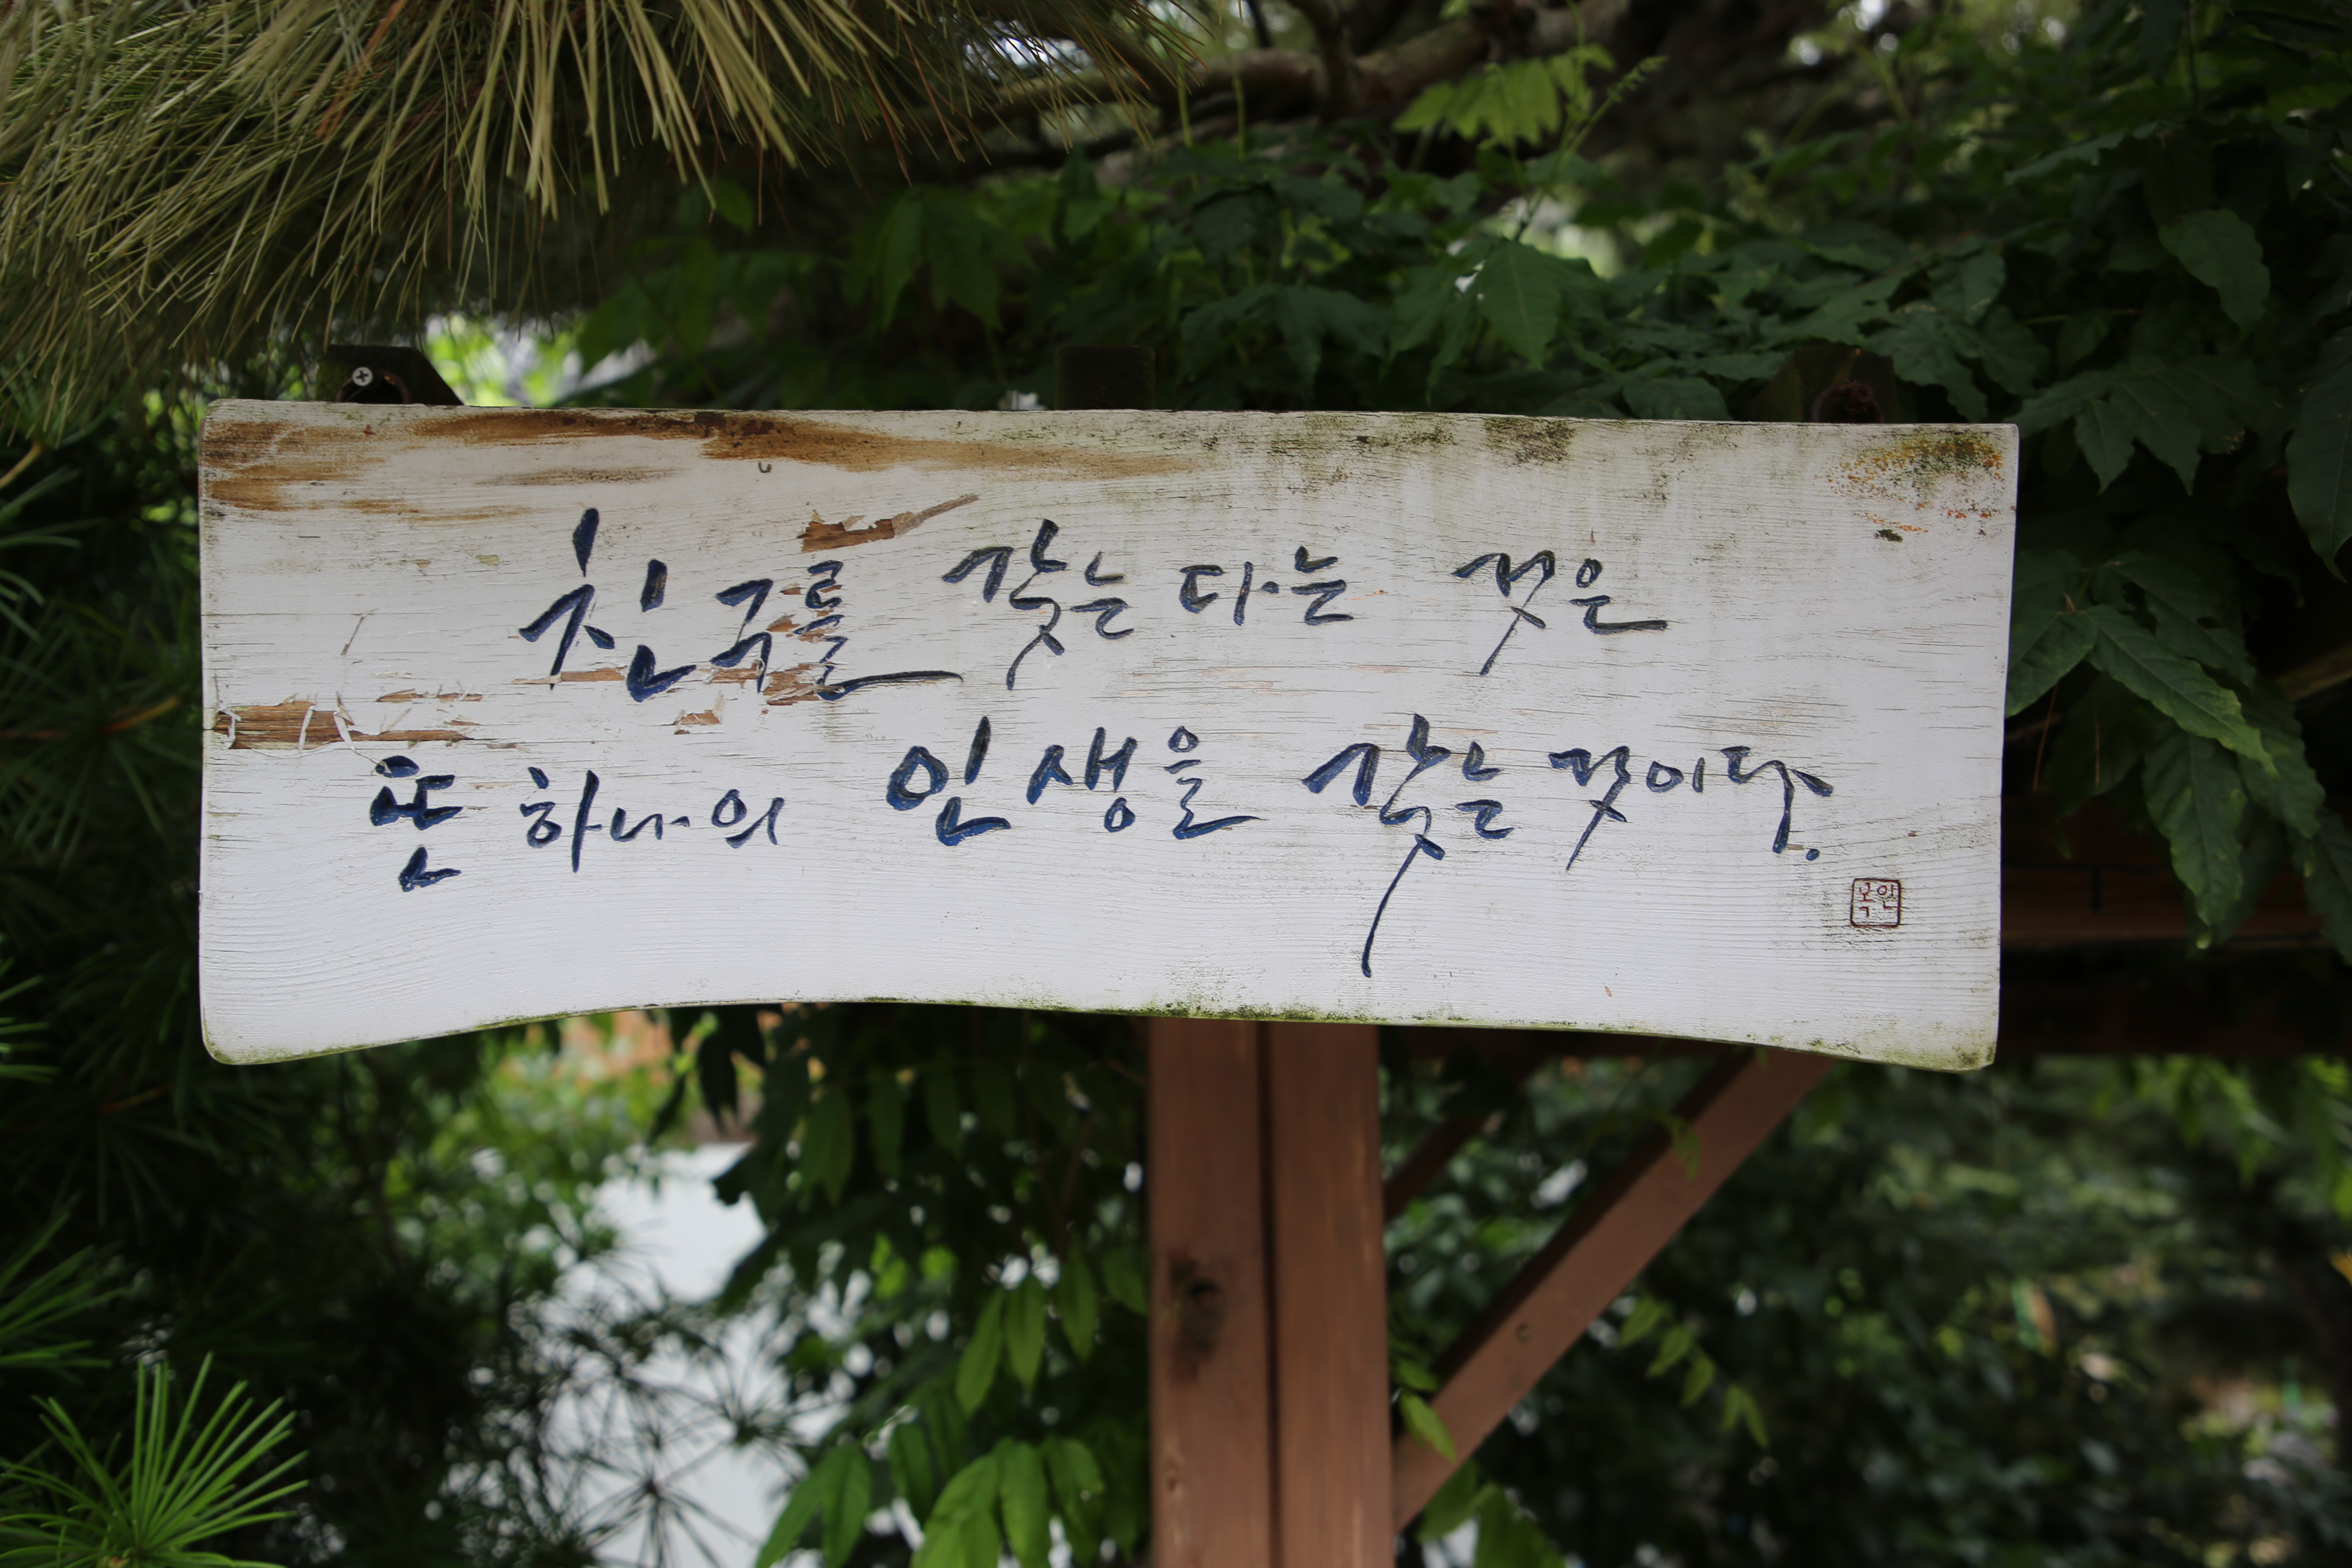 친구를 갖는다는 것은
또 하나의 인생을 갖는것이다.